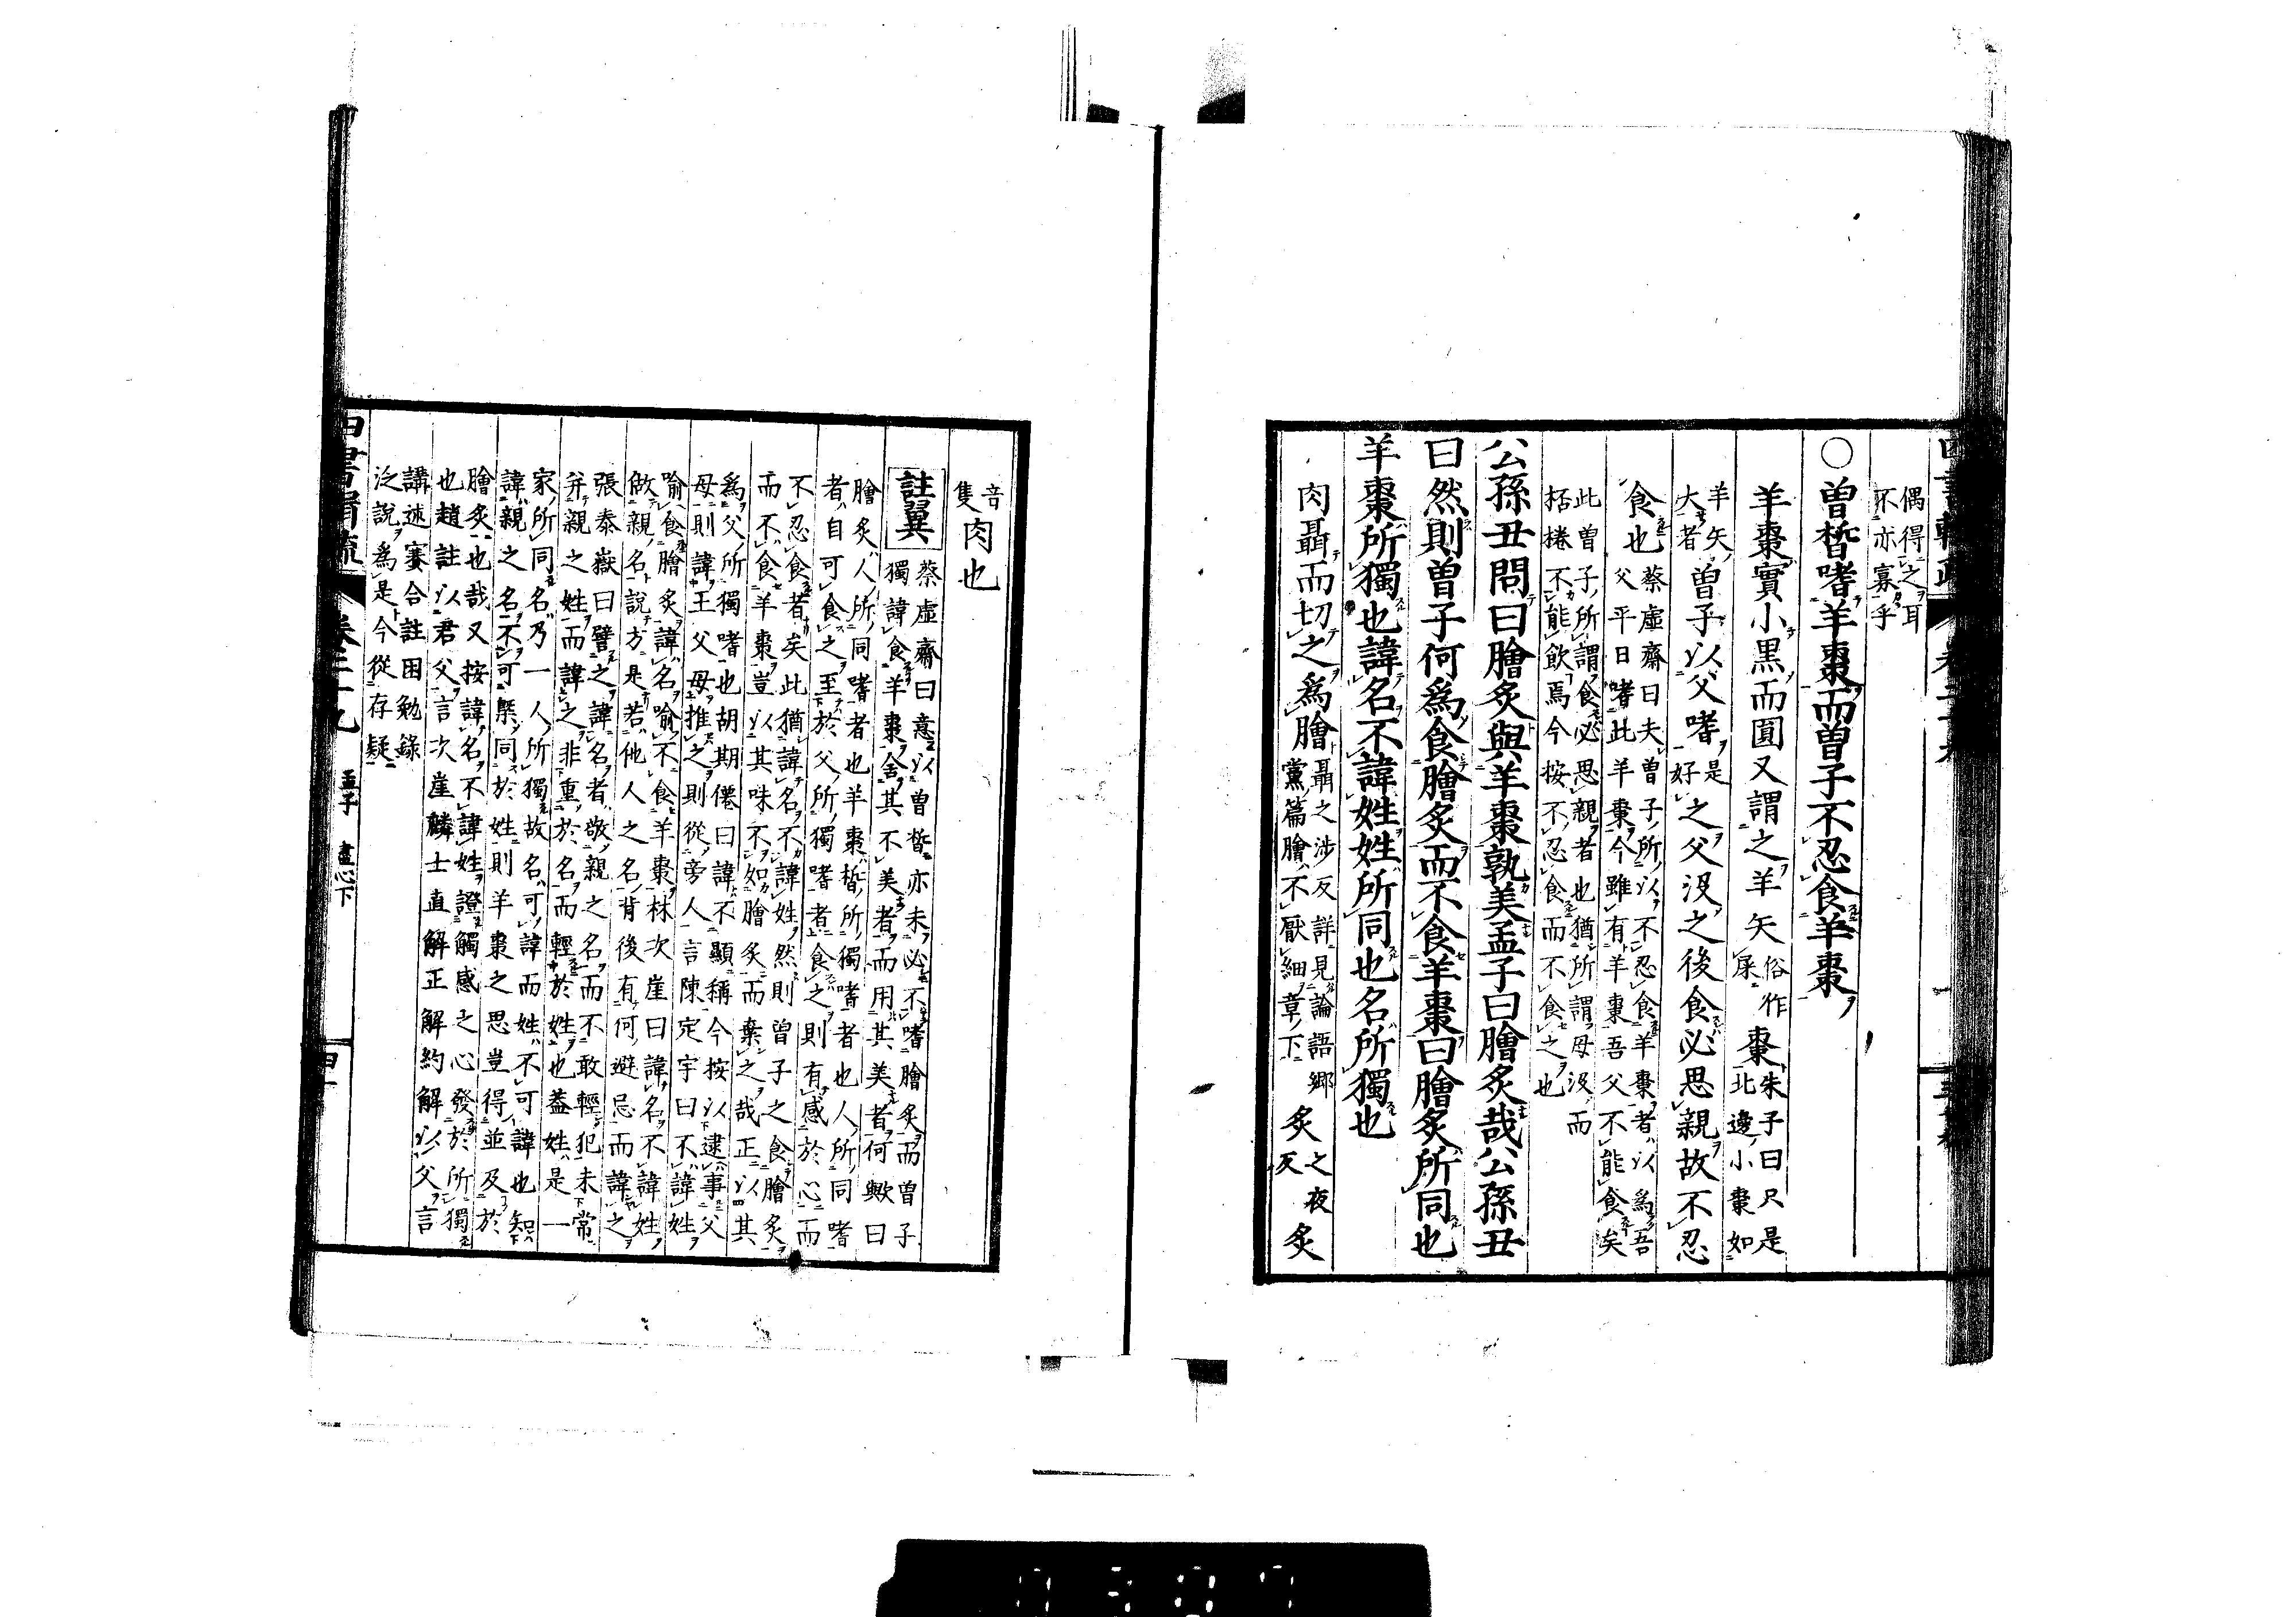 偶得之耳
不亦寡乎
○曽晳嗜羊棗而曽子不忍食羊棗
羊棗實小黒而圓又謂之羊矢俗作屎棗朱子曰只是北邊小棗如
羊矢大者曽子以父嗜是好之父没之後食必思親故不忍
食也蔡虚齋曰夫曽子所以不忍食羊棗者以爲吾父平日嗜此羊棗今雖有羊棗吾父不能食矣
此曽子所謂食必思親者也猶所謂母没而桮棬不能飲焉今按不忍食而不食之也
公孫丑問曰膾炙與羊棗孰美孟子曰膾炙哉公孫丑
曰然則曽子何爲食膾炙而不食羊棗曰膾炙所同也
羊棗所獨也諱名不諱姓姓所同也名所獨也
肉聶而切之爲膾聶之渉反詳見論語郷黨篇膾不厭細章下炙之夜反炙
音隻肉也
註翼蔡虚齋曰意以曽晳亦未必不嗜膾炙而曽子獨諱食羊棗舍其不美者而用其美者何歟曰
膾炙人所同嗜者也羊棗晳所獨嗜者也人所同嗜者自可食之至於父所獨嗜者食之則有感於心而
不忍食者矣此猶諱名不諱姓然則曽子之食膾炙而不食羊棗豈以其味不如膾炙而棄之哉正以其
爲父所獨嗜也胡期僊曰諱不顯稱今按以逮事父母則諱王父母推之則從旁人言陳定宇曰不諱姓
喩食膾炙諱名喩不食羊棗林次崖曰諱名不諱姓做親名説方是若他人之名背後有何避忌而諱之
張泰嶽曰譬之諱名者敬親之名而不敢輕犯未常并親之姓而諱之非重於名而輕於姓也葢姓是一
家所同名乃一人所獨故名可諱而姓不可諱也知諱親之名不可槩同於姓則羊棗之思豈得並及於
膾炙也哉又按諱名不諱姓證觸感之心發於所獨也趙註以君父言次崖麟士直解正解約解以父言
講述㝫合註困勉錄泛説爲是今從存疑
孟子　盡心下